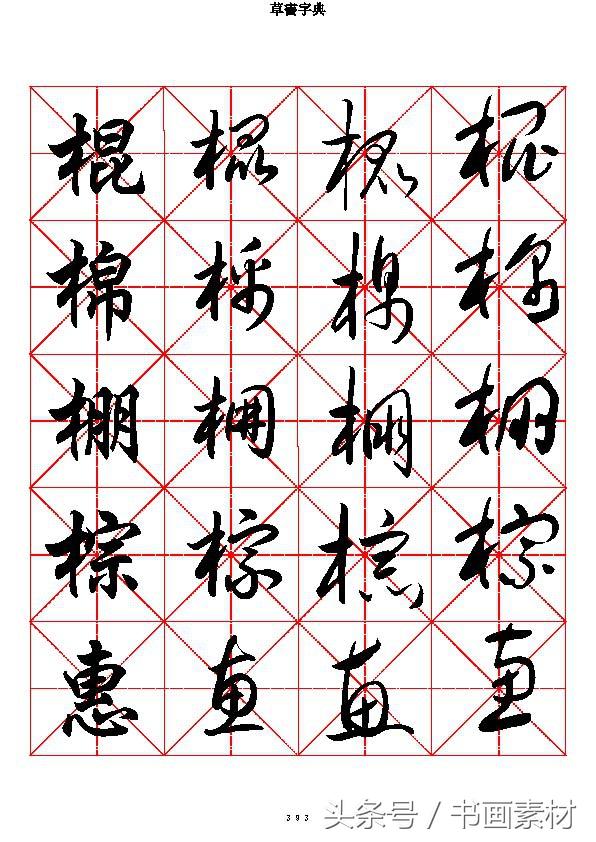 草書字典
棍棍棍棍
棉棉棉棉
棚棚棚棚
棕棕棕棕
惠惠惠惠
393
头条号 / 书画素材